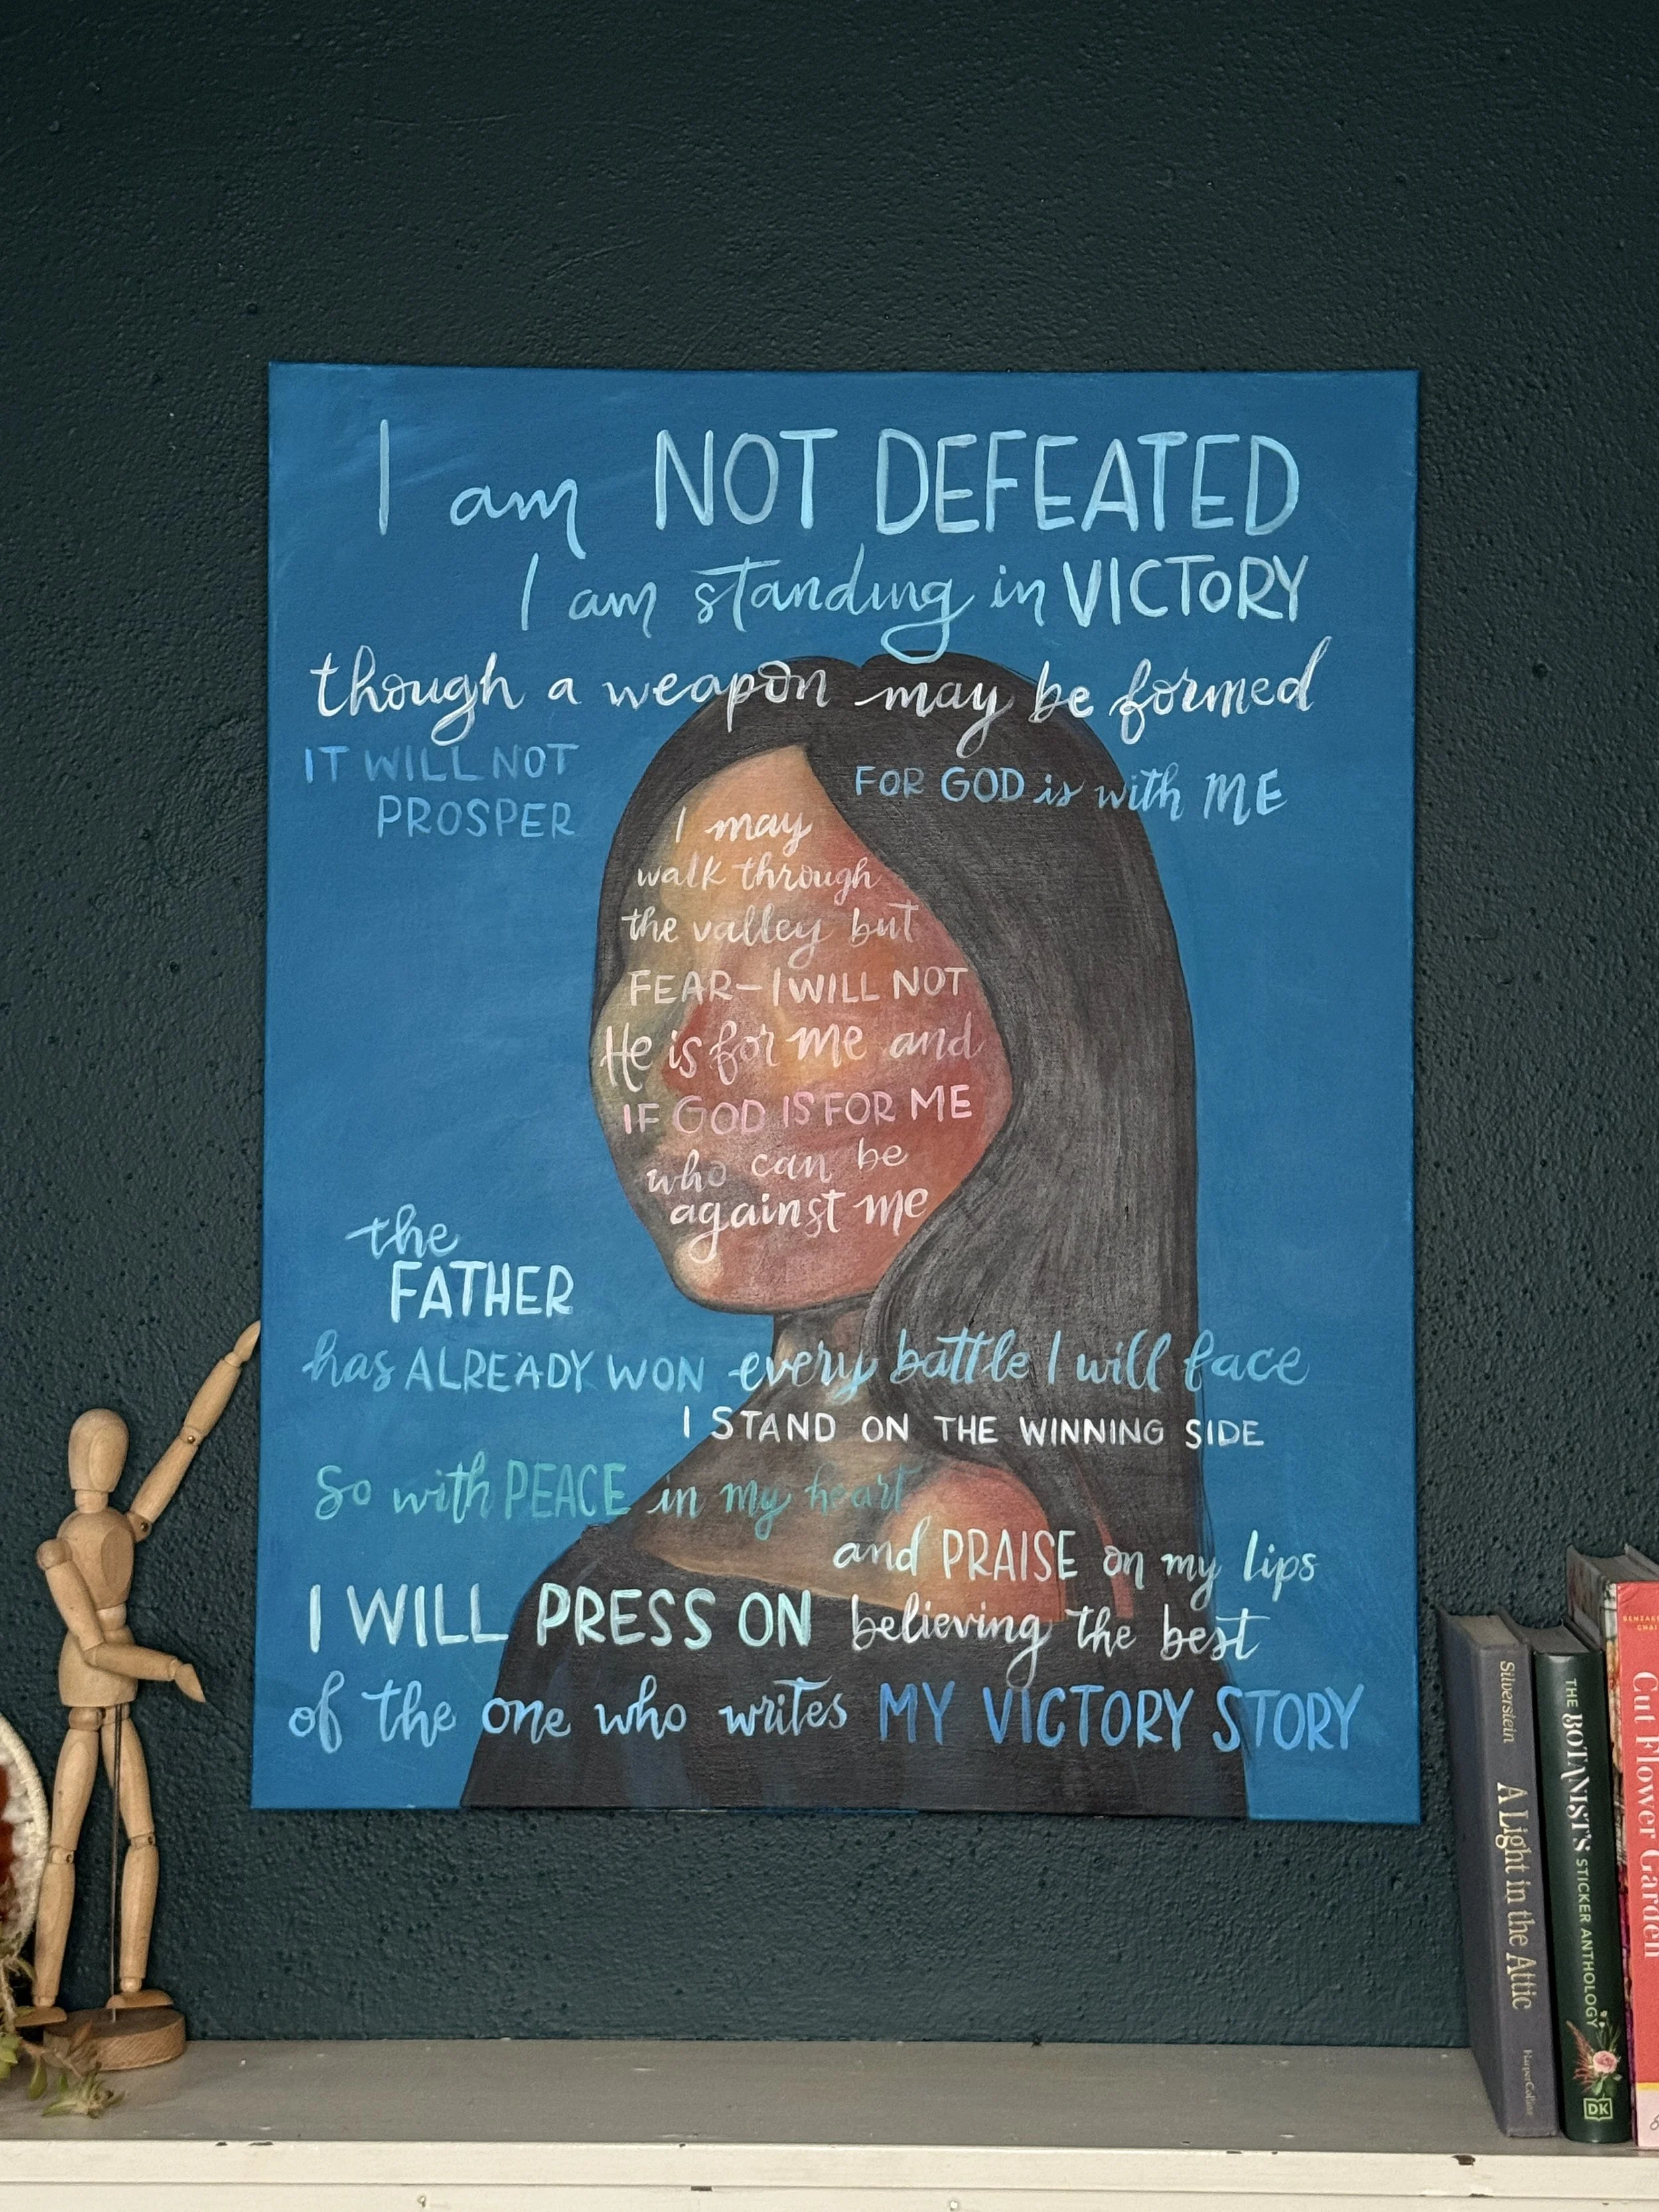 I am NOT DEFEATED
I am standing in VICTORY
though a weapon may be formed
IT WILL NOT
PROSPER
FOR GOD is with ME
I may
walk through
the valley but
FEAR-I WILL NOT
He is for me and
IF GOD IS FOR ME
who can be
against me
the
FATHER
has ALREADY WON every battle I will face
I STAND ON THE WINNING SIDE
So with PEACE in my heart
and PRAISE on my lips
I WILL PRESS ON believing the best
of the one who writes MY VICTORY STORY
Silverstein A Light in the Attic HarperCollins
THE BOTANIST'S STICKER ANTHOLOGY
DK
Cut Flower Garden